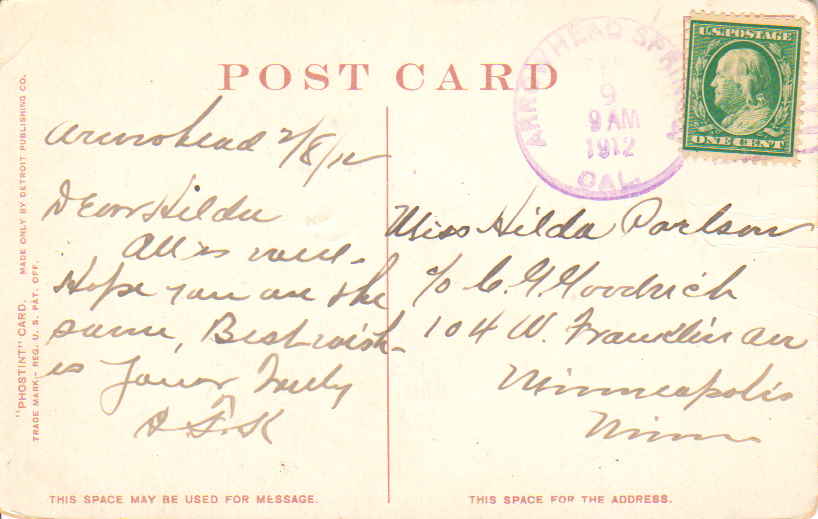 POST CARD
ARROWHEAD SPRINGS
9
9 AM
1912
CAL.
U.S. POSTAGE
ONE CENT
Arrowhead 2/8/12
Dear Hilda
All is well.
Hope you are the
same, Best wish-
es Yours Truly
Miss Hilda Parlson
c/o C. G. Goodrich
104 W. Franklin av
Minneapolis
Minn
"PHOSTINT" CARD. MADE ONLY BY DETROIT PUBLISHING CO.
TRADE MARK,- REG. U. S. PAT. OFF.
THIS SPACE MAY BE USED FOR MESSAGE.
THIS SPACE FOR THE ADDRESS.